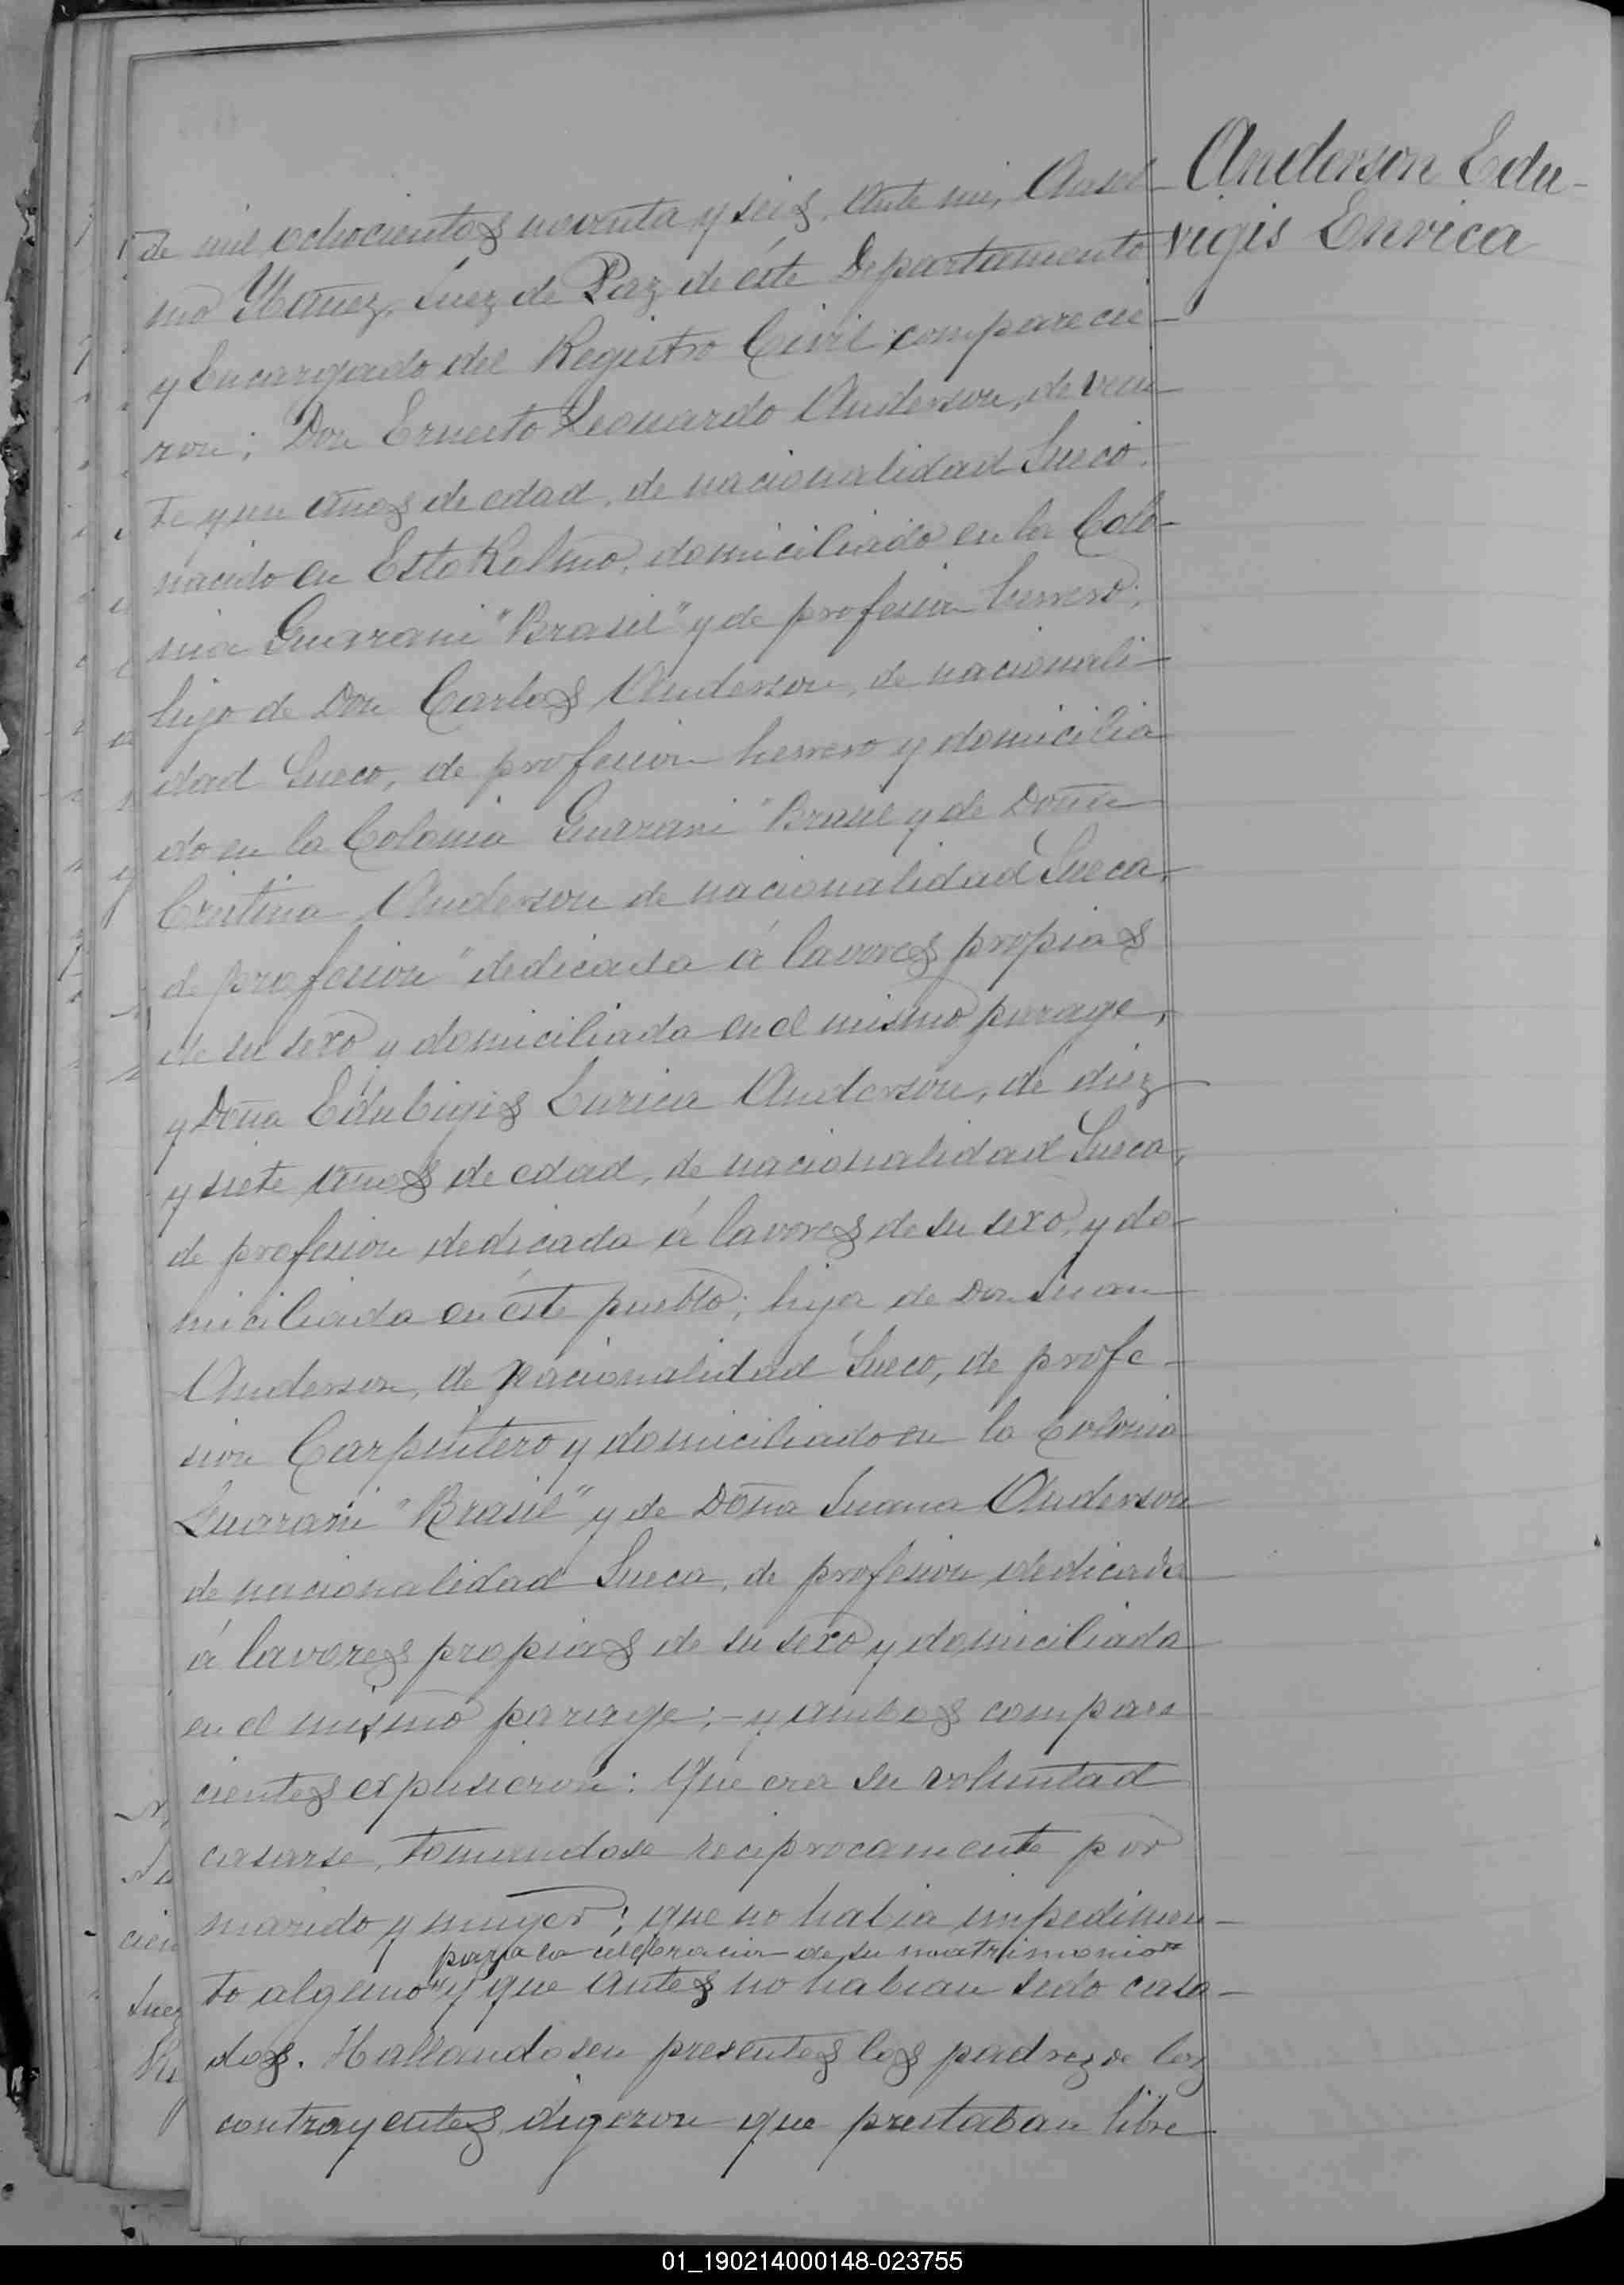 Anderson Edu-
vigis Enrica
de mil ochocientos noventa y seis. Ante mi, Ansel
mo Ybañez, Juez de Paz de éste Departamento
y Encargado del Registro Civil comparecie-
ron; Don Ernesto Leonardo Anderson, de vein
te y un años de edad, de nacionalidad Sueco,
nacido en Estokolmo, domiciliado en la Colo-
nia Guarani "Brasil" y de profesion herrero;
hijo de Don Carlos Anderson, de nacionali-
dad Sueco, de profesion herrero y domicilia
do en la Colonia Guarani "Brasil y de Doña
Cristina Anderson de nacionalidad Sueca,
de profesion "dedicada á lavores propias
de su sexo y domiciliada en el mismo parage,
y Doña Edubigis Enrica Anderson, de diez
y siete años de edad, de nacionalidad Sueca,
de profesion dedicada á lavores de su sexo, y do-
miciliada en éste pueblo; hija de Don Juan
Anderson, de nacionalidad Sueco, de profe-
sion Carpintero y domiciliado en la Colonia
Guarani "Brasil" y de Doña Juana Anderson
de nacionalidad Sueca, de profesion dedicada
á lavores propias de su sexo y domiciliada
en el mismo parage; - y ambos compare
cientes expusieron: Que era su voluntad
casarse, tomandose reciprocamente por
marido y muger; que no habia impedimen-
para la celebracion de su matrimonio
to alguno y que antes no habian sido casa-
dos. Hallandosen presentes los padres de los
contrayentes digeron que prestaban libre
01_190214000148-023755